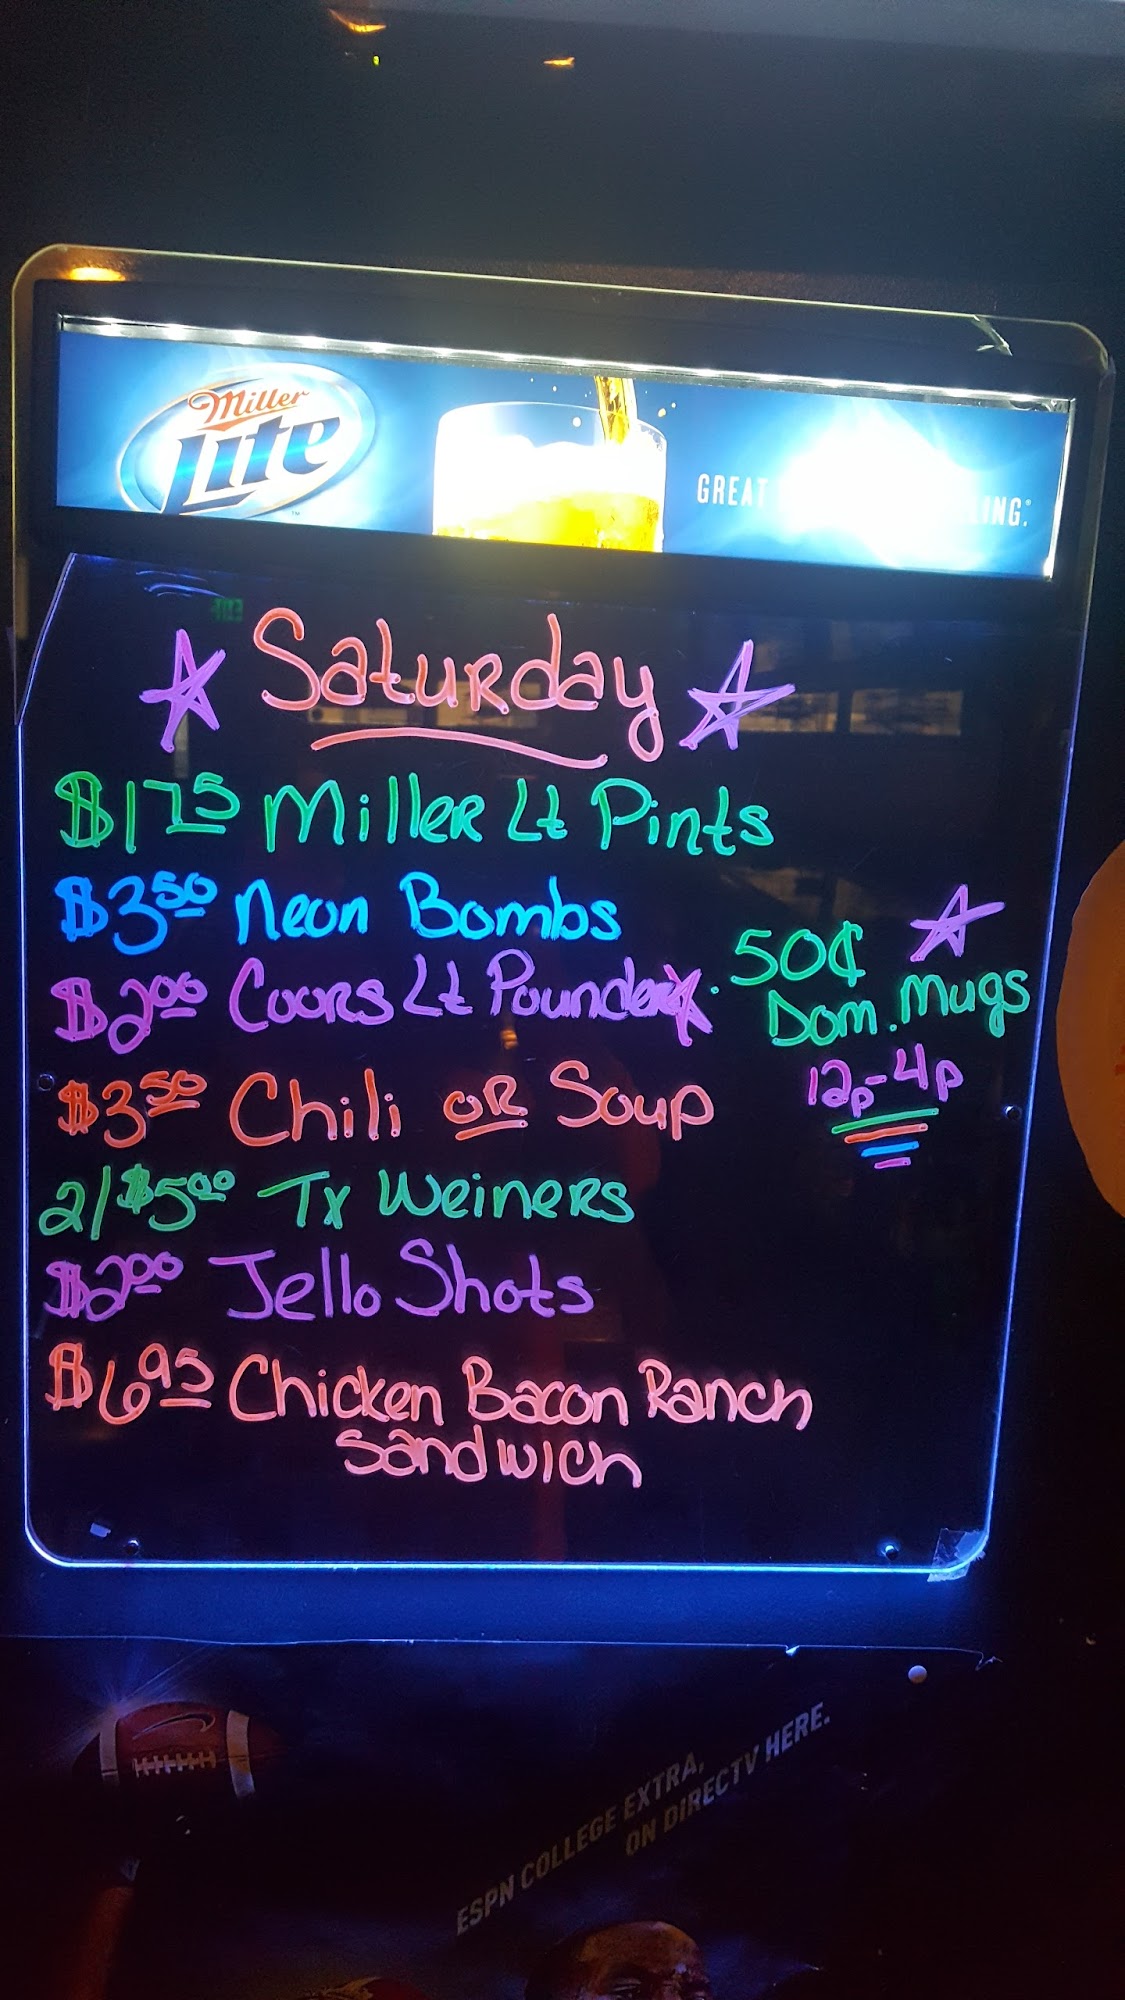 Miller
Lite
GREAT
Saturday
$1.75 Miller Lt Pints
$3.50 Neon Bombs
$2.00 Coors Lt Pounder
50¢
Dom. Mugs
12p-4p
$3.50 Chili or Soup
2/$5.00 Tx Weiners
$2.00 Jello Shots
$6.95 Chicken Bacon Ranch
Sandwich
ESPN COLLEGE EXTRA,
ON DIRECTV HERE.